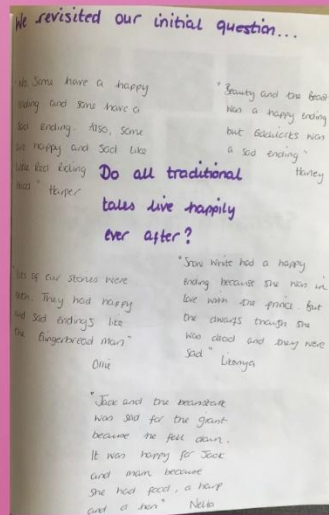 We revisited our initial question...
"No. Some have a happy
ending and some have a
sad ending. Also, some
are happy and sad like
Little Red Riding
Hood" Harper
"Beauty and the Beast
was a happy ending
but Goldilocks was
a sad ending"
Harley
Do all traditional
tales live happily
ever after?
of our stories were
both. They had happy
and sad endings like
the Gingerbread man"
Ollie
"Snow White had a happy
ending because she was in
love with the prince. But
the dwarfs though she
was dead and they were
sad"
"Jack and the beanstalk
was sad for the giant
because he fell down.
It was happy for Jack
and mam because
she had food, a harp
and a hen"